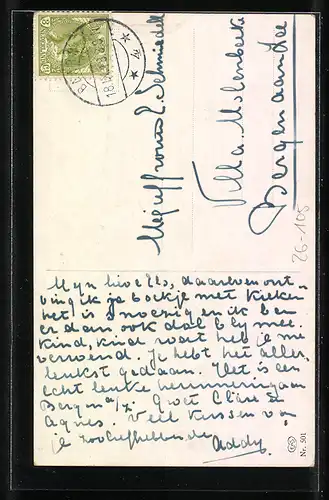 Mejuffrouw E. Schmiedell
Villa Molenbeek
Bergen aan Zee
26-105
Myn lieve Ells, daarleven ont-
ving ik je boekje met Kieken
het is snoezig en ik ben
er dan ook dol bly mee.
Kind, kind wat heb je me
verwend. Je hebt het aller
leukst gedaan. Het is een
echt leuke herinnering aan
Bergen a/z. Groet Claire en
Agnes. Veel kussen van
je liefhebbende
Addy
Nr. 501